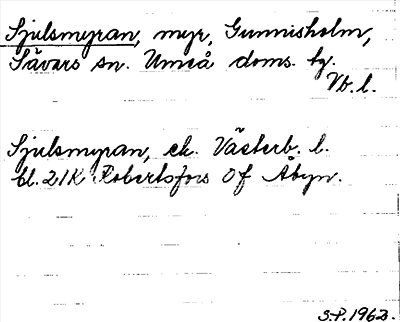 Sjulsmyran, myr, Gunnisholm,
Sävars sn. Umeå doms. hg.
Vb. l.
Sjulsmyran, ek. Västerb. l.
bl. 21K Robertsfors 0f Åbyn.
S.P. 1963.